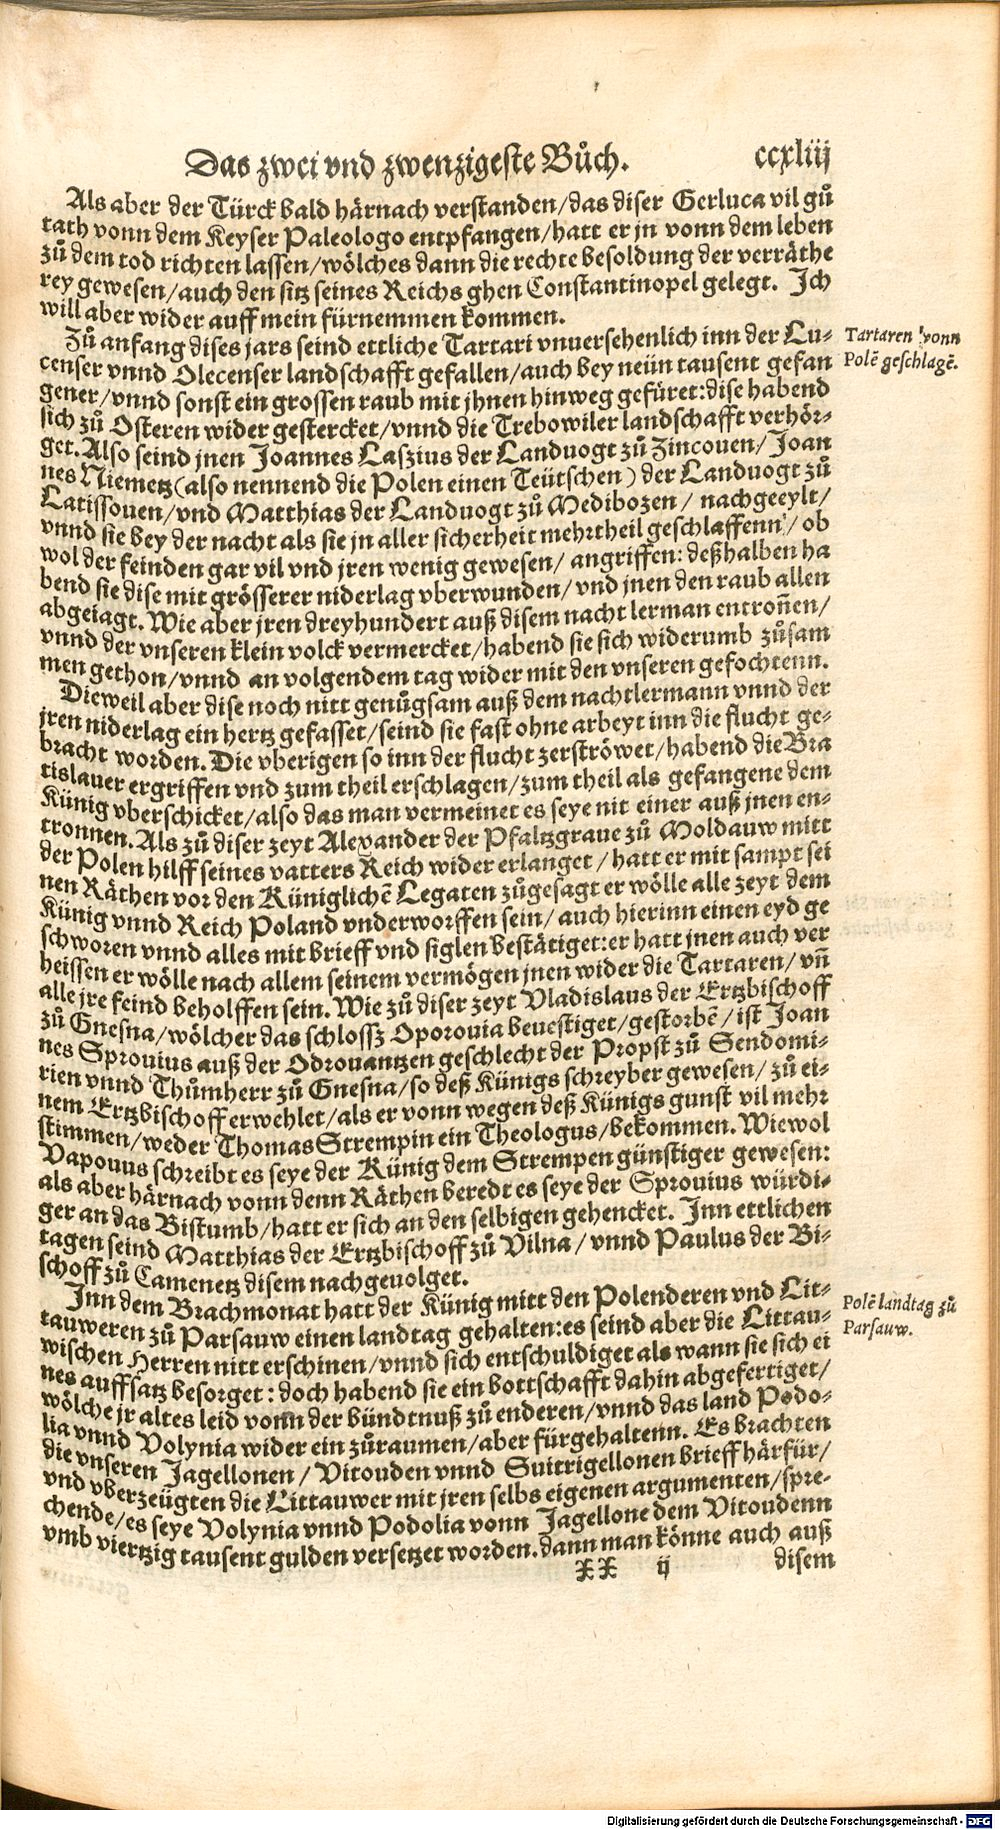 Das zwei vnd zwenzigeste Bůch. ccxliij
Als aber der Türck bald härnach verstanden/das diser Gerluca vil gů
tath vonn dem Keyser Paleologo entpfangen/hatt er jn vonn dem leben
zů dem tod richten lassen/wölches dann die rechte besoldung der verräthe
rey gewesen/auch den sitz seines Reichs ghen Constantinopel gelegt. Ich
will aber wider auff mein fürnemmen kommen.
Zů anfang dises jars seind ettliche Tartari vnuersehenlich inn der Lu-
censer vnnd Olecenser landschafft gefallen/auch bey neün tausent gefan
gener/vnnd sonst ein grossen raub mit jhnen hinweg gefüret:dise habend
sich zů Osteren wider gestercket/vnnd die Trebowiler landschafft verhör-
get. Also seind jnen Joannes Laszius der Landuogt zů Zincouen/Joan
nes Niemetz(also nennend die Polen einen Teütschen) der Landuogt zů
Latissouen/vnd Matthias der Landuogt zů Medibozen/ nachgeeylt/
vnnd sie bey der nacht als sie jn aller sicherheit mehrtheil geschlaffenn/ ob
wol der feinden gar vil vnd jren wenig gewesen/ angriffen: deßhalben ha
bend sie dise mit grösserer niderlag vberwunden/vnd jnen den raub allen
abgeiagt. Wie aber jren dreyhundert auß disem nacht lerman entroñen/
vnnd der vnseren klein volck vermercket/habend sie sich widerumb zůsam
men gethon/vnnd an volgendem tag wider mit den vnseren gefochtenn.
Dieweil aber dise noch nitt genůgsam auß dem nachtlermann vnnd der
jren niderlag ein hertz gefasset/seind sie fast ohne arbeyt inn die flucht ge-
bracht worden. Die vberigen so inn der flucht zerströwet/habend die Bra
tislauer ergriffen vnd zum theil erschlagen/zum theil als gefangene dem
Künig vberschicket/also das man vermeinet es seye nit einer auß jnen en-
tronnen. Als zů diser zeyt Alexander der Pfaltzgraue zů Moldauw mitt
der Polen hilff seines vatters Reich wider erlanget/hatt er mit sampt sei
nen Räthen vor den Küniglichē Legaten zůgesagt er wölle alle zeyt dem
Künig vnnd Reich Poland vnderworffen sein/auch hierinn einen eyd ge
schworen vnnd alles mit brieff vnd siglen bestätiget:er hatt jnen auch ver
heissen er wölle nach allem seinem vermögen jnen wider die Tartaren/vñ
alle jre feind beholffen sein. Wie zů diser zeyt Vladislaus der Ertzbischoff
zů Gnesna/wölcher das schlossz Oporouia beuestiget/gestorbē/ist Joan
nes Sprouius auß der Odrouantzen geschlecht der Propst zů Sendomi-
rien vnnd Thůmherr zů Gnesna/so deß Künigs schreyber gewesen/zů ei-
nem Ertzbischoff erwehlet/als er vonn wegen deß Künigs gunst vil mehr
stimmen/weder Thomas Strempin ein Theologus/bekommen. Wiewol
Vapouus schreibt es seye der Künig dem Strempen günstiger gewesen:
als aber härnach vonn denn Räthen beredt es seye der Sprouius würdi-
ger an das Bistumb/hatt er sich an den selbigen gehencket. Inn ettlichen
tagen seind Matthias der Ertzbischoff zů Vilna/vnnd Paulus der Bi-
schoff zů Camenetz disem nachgeuolget.
Inn dem Brachmonat hatt der Künig mitt den Polenderen vnd Lit-
tauweren zů Parsauw einen landtag gehalten:es seind aber die Littau-
wischen Herren nitt erschinen/vnnd sich entschuldiget als wann sie sich ei
nes auffsatz besorget: doch habend sie ein bottschafft dahin abgefertiget/
wölche jr altes leid vonn der bündtnuß zů enderen/vnnd das land Podo-
lia vnnd Volynia wider ein zůraumen/aber fürgehaltenn. Es brachten
die vnseren Jagellonen/ Vitouden vnnd Suitrigellonen brieff härfür/
vnd vberzeügten die Littauwer mit jren selbs eigenen argumenten/spre-
chende/es seye Volynia vnnd Podolia vonn Jagellone dem Vitoudenn
vmb viertzig tausent gulden versetzet worden. dann man könne auch auß
XX ij disem
Tartaren vonn
Polē geschlagē.
Polē landtag zů
Parsauw.
Digitalisierung gefördert durch die Deutsche Forschungsgemeinschaft - DFG